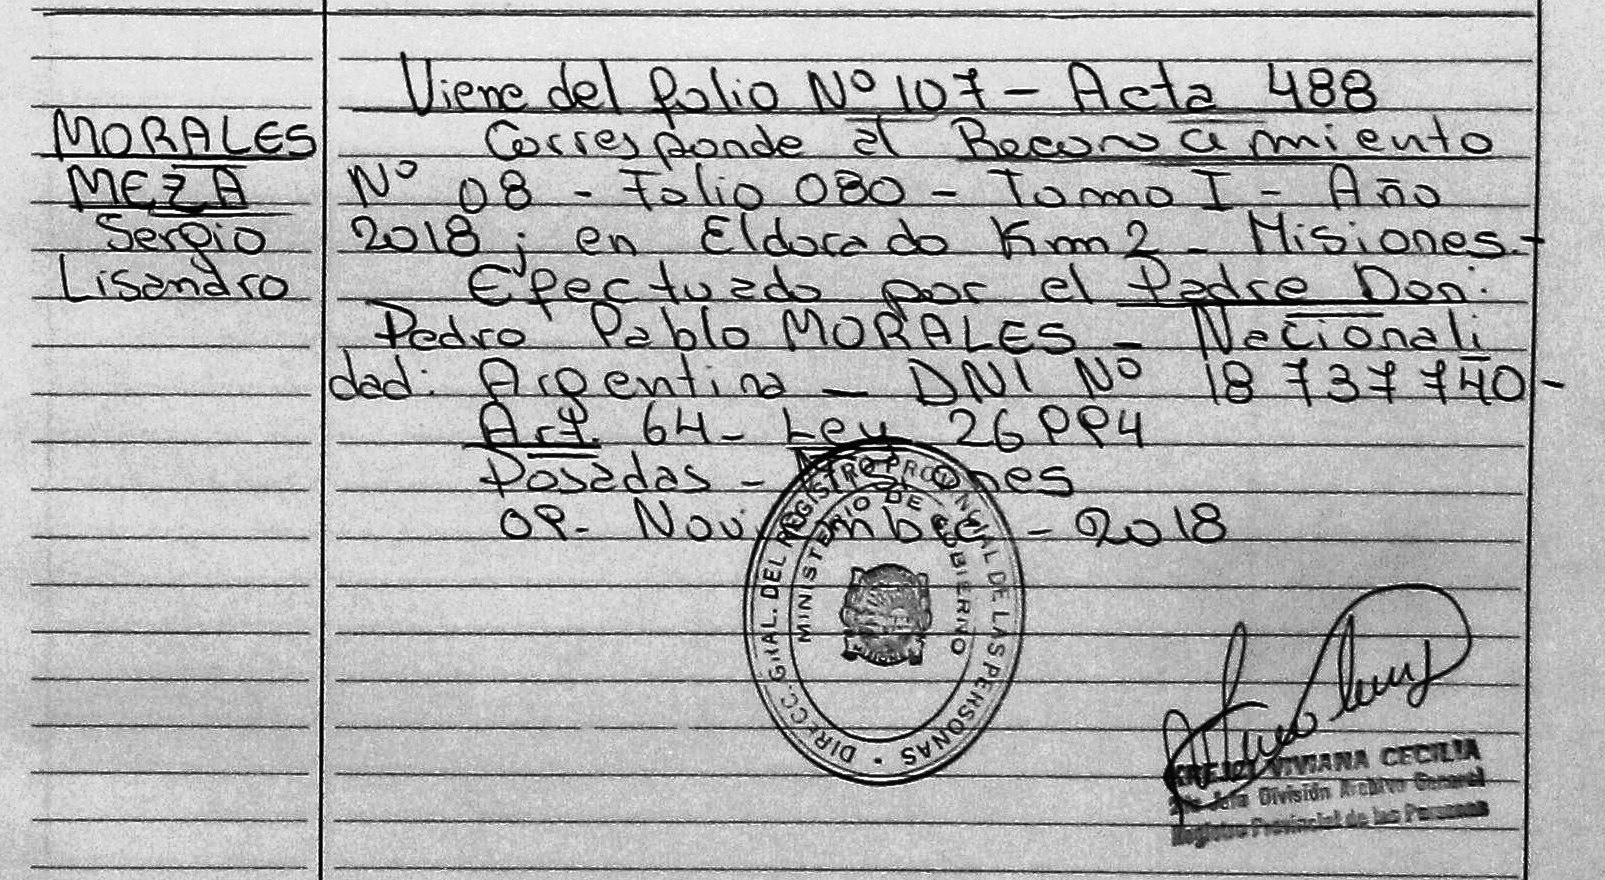 Viene del folio Nº 107 - Acta 488
MORALES
MEZA
Sergio
Lisandro
Corresponde al Reconocimiento
Nº 08 - Folio 080 - Tomo I - Año
2018; en Eldorado Km 2 - Misiones.-
Efectuado por el Padre Don:
Pedro Pablo MORALES - Nacionali
dad: Argentina - DNI Nº 18 737 740 -
Art. 64 - Ley 26994
Posadas - Misiones
09 - Noviembre - 2018
DIRECC. GRAL. DEL REGISTRO PROVINCIAL DE LAS PERSONAS
MINISTERIO DE GOBIERNO
VIVIANA CECILIA
Jefa División Archivo General
Registro Provincial de las Personas